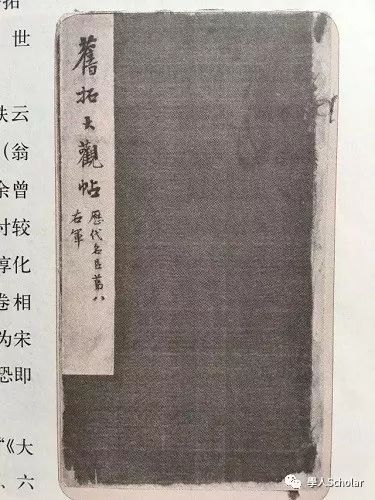 舊拓大觀帖
歷代名臣第八
右軍
世
云
（翁
余曾
对较
淳化
卷相
为宋
恐即
“《大
、六
學人Scholar